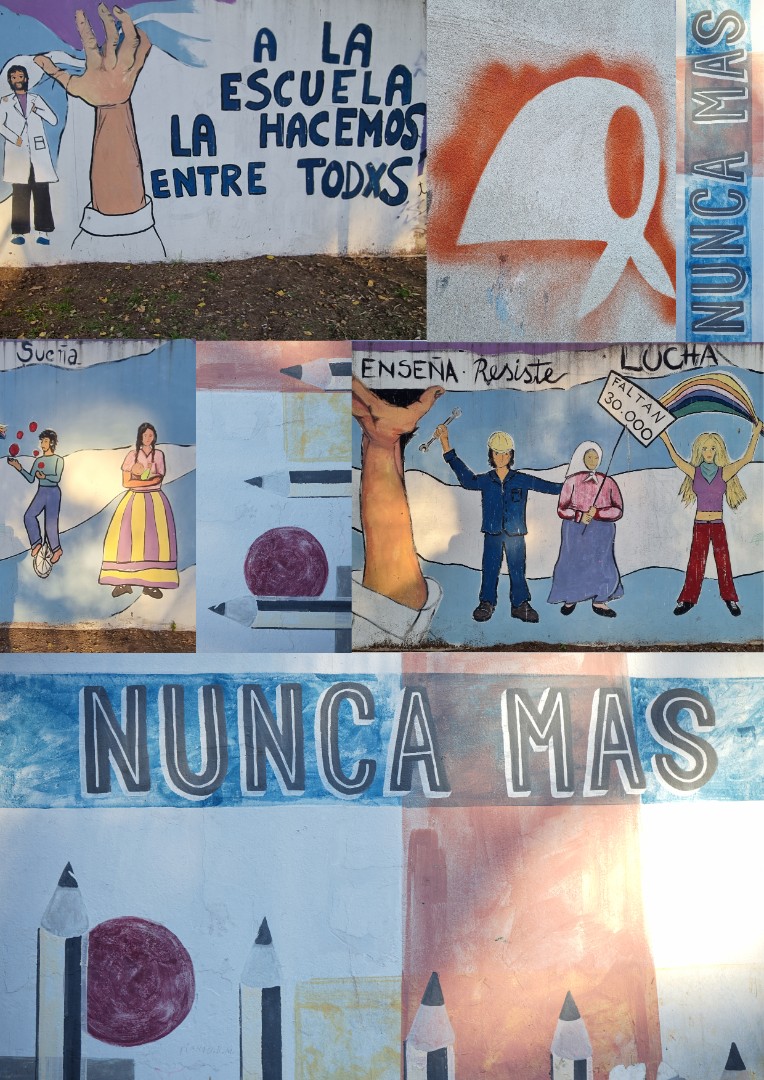 A LA
ESCUELA
LA HACEMOS
ENTRE TODXS
NUNCA MAS
Sueña
ENSEÑA · Resiste
LUCHA
FALTAN
30.000
NUNCA MAS